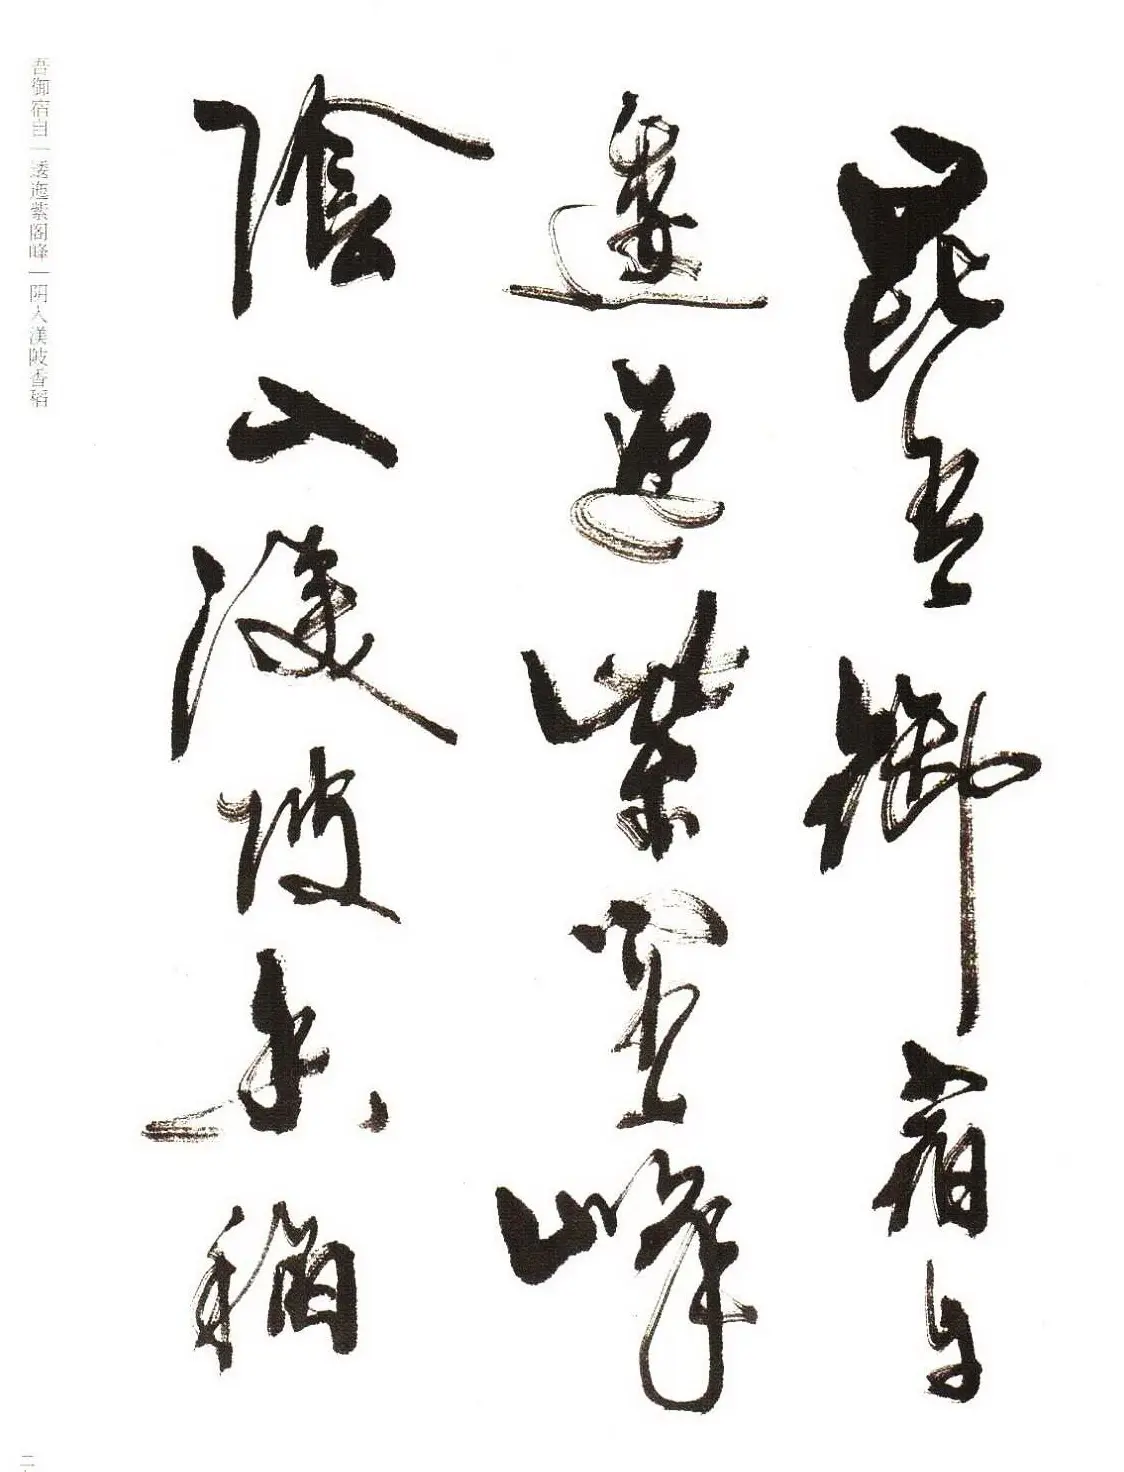 昆吾御宿自
逶迤紫閣峰
陰入渼陂香稻
吾御宿自｜逶迤紫阁峰｜阴入渼陂香稻
二